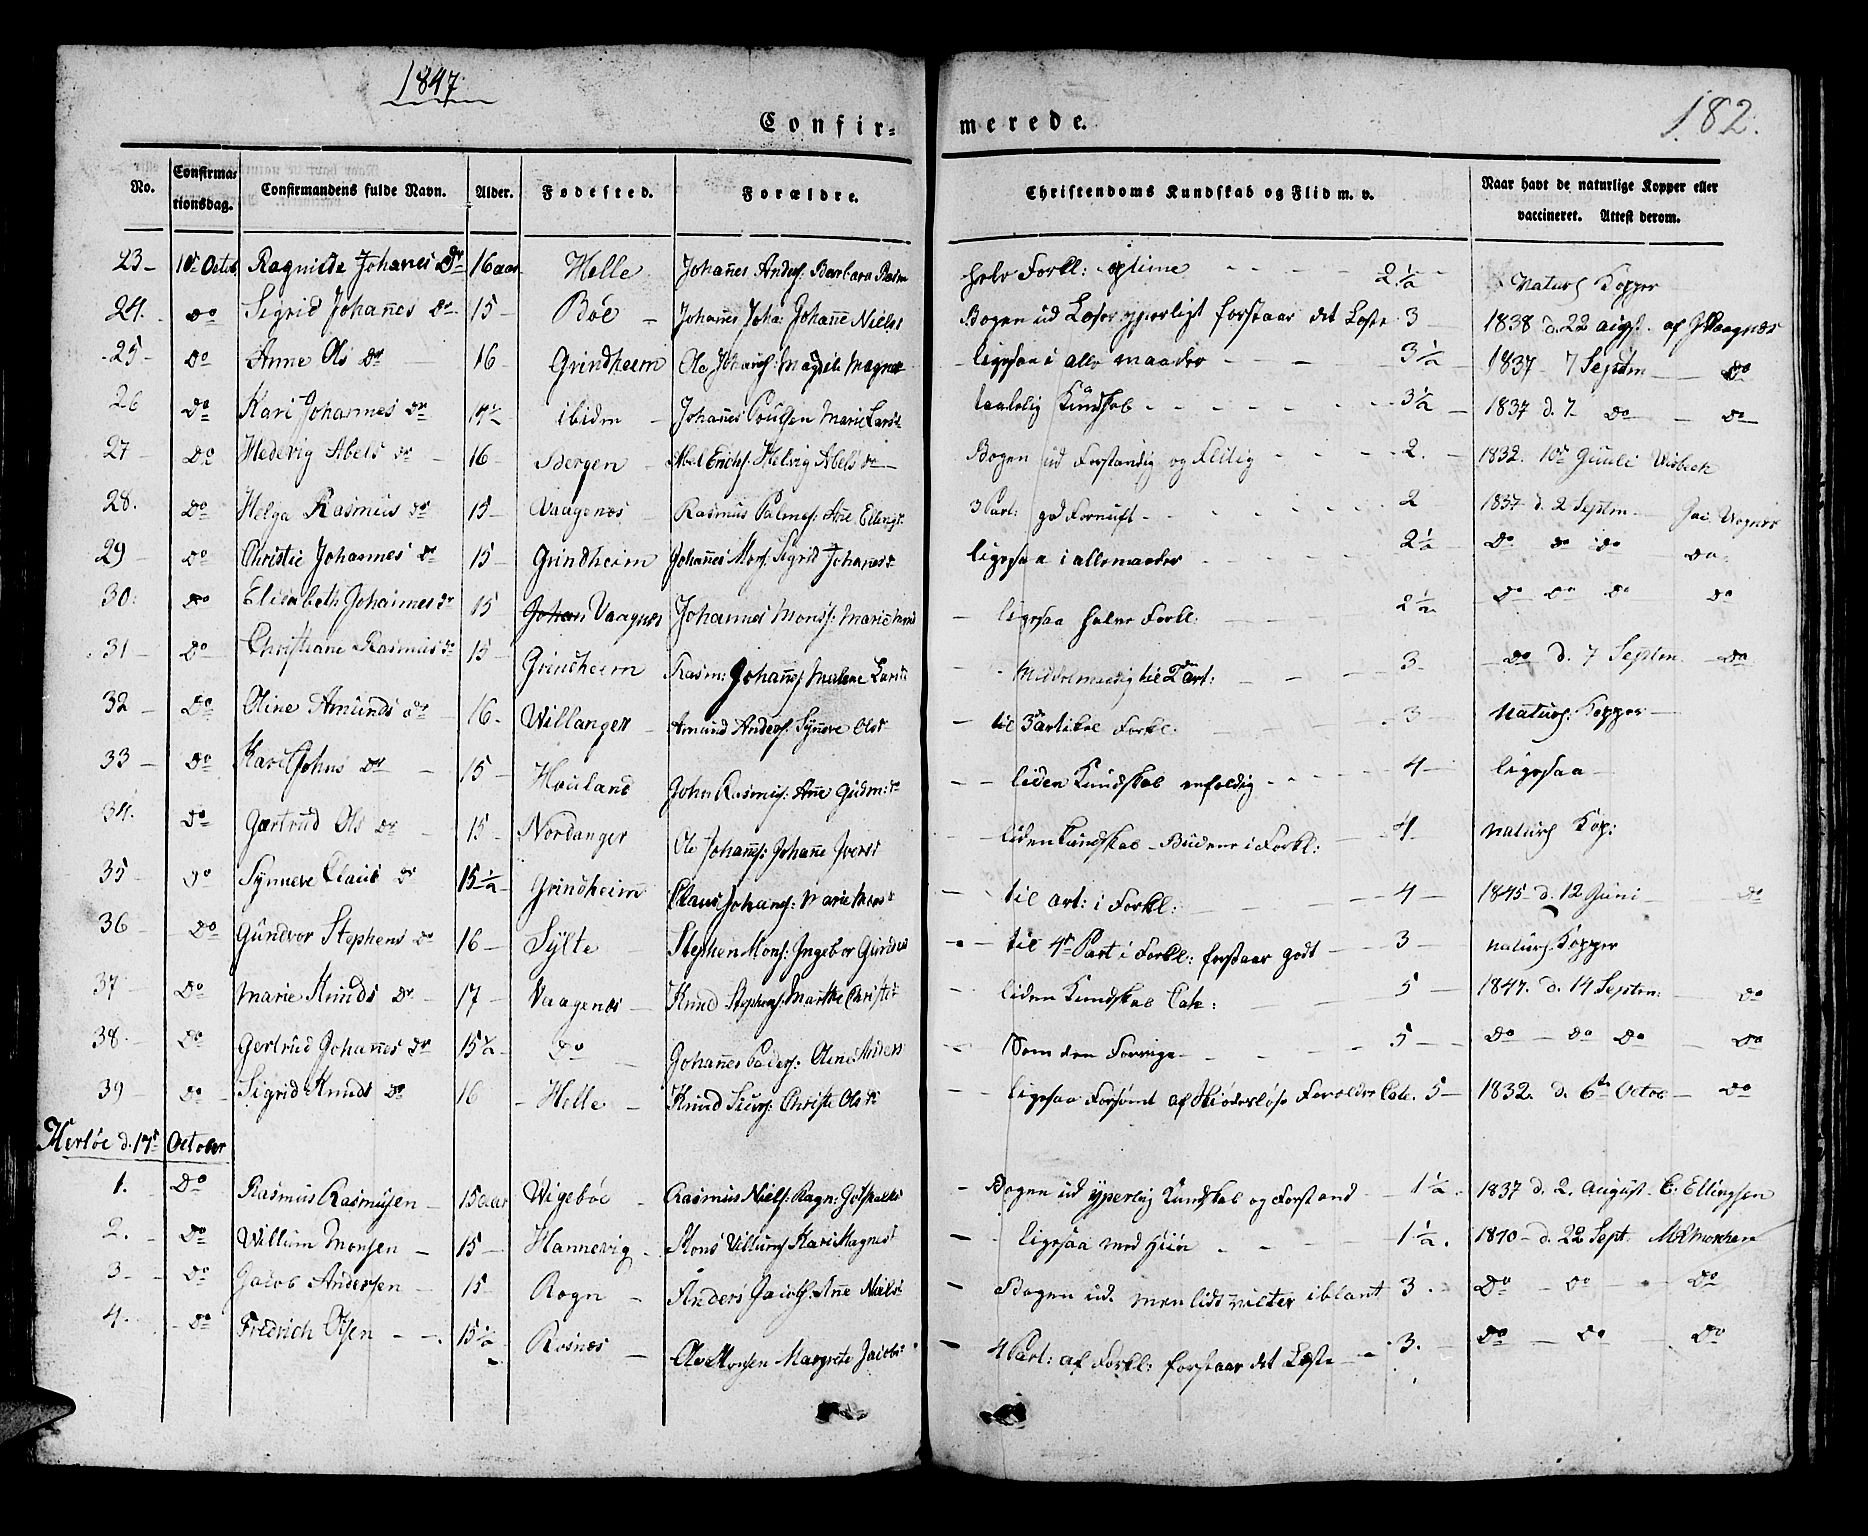 1847
182.
Confirmerede.
No. Confirmationsdag. Confirmandens fulde Navn. Alder. Fødested. Forældre. Christendoms Kundskab og Flid m. v. Naar havt de naturlige Kopper eller vaccineret. Attest derom.
23 – 10de Octob. Ragnilde Johañes Dr 16 aar Helle Johañes Anders: Barbara Rasm hele Forkl: optime 2½ Naturl Kopper
24. do Sigrid Johañes dr 15 – Böe – Johañes Joha: Johañe Niels Bogen ud Læser yperligt forstaar det Læste 3 1838 d. 22 augst. af
25 – do Anne Ols dr 16 Grindheim Ole Magdele Magne ligesaa i alle maader 3½ 1837 – 7 Septm – do
26 do Kari Johannes dr ibidm – Johañes Poulsen Marie Lars taalelig Kundskab 3½ 1837 d. 7 do – do
27 – do Hedevig Abels dr – 16 – Bergen – Abel Erichs: Helvig Abels dr – Bogen ud Forstandig og Flitig 2. 1832. 10de Juuli Wisbech
28. do Helga Rasmus dr 15 – Vaagenes Rasmus Palmes: Añe Ellings 3 Part: god Fornuft – 2 1837 d. 2 Septm –
29 – do Christie Johannes dr 15 – Grindheim Johañes Mons: Sigrid Johanesdr ligesaa i allemaader 2½ do do do do
30. do Elisabeth Johannes dr 15 Johan Vaagnes Johannes Mons: Marie Mons – ligesaa halve Forkl: 2½ do do do do
31 – do Christiane Rasmus dr 15 – Grindheim Rasm: Johañes Malene Lars Middelmaadig til 2 art: 3 – do d. 7 Septm – do
32 – do Oline Amunds dr – 16. Willanger – Amund Anders: Synneve Ols – til 3 artikel Forkl. 3 – Naturl: Kopper –
33 – do Kari Johns dr – 15 – Houland John Rasmus: Añe Gudm: – – liden Kundskab enfoldig 4 – ligesaa –
34. do Gertrud Ols dr – 15 – Nordanger Ole Johañes: Johañe Ivers liden Kundskab – Budene i Forkl: – 4 naturl Kop:
35 – do Synneve Claus dr 15½ – Grindheim Claus Johanes: Marie Mons – til art: i Forkl: 4 – 1845 d. 12 Juni – do
36 – do Gundvor Stephens dr 16 – Sylte – Stephen Mons: Ingebor – til 4de Part i Forkl: forstaar godt – 3 – naturl Kopper
37 – do Marie Knuds dr – 17 – Vaagenes – Knud Stephens Marthe Christi – liden Kundskab Cate: 5 – 1847. d. 14 Septm: – do
38. do Gertrud Johañes dr 15½ – do – Johañes Peders: Oline Anders – Som den Forrige 5 – do – do do – do
39 – do – Sigrid Knuds do 16 – Helle – Knud Siurs: Christi Ols – ligesaa Forsömt af Skiödeslöse Forældre Cate. 5 – 1832. d. 6te Octob – do
Herlöe d. 17de October
1. do Rasmus Rasmusen – 15 aar Wigeböe – Rasmus Niels: Ragn: Gotskalks – Bogen ud yperlig Kundskab og Forstand 1½. 1837 d. 2. August. C: Ellingsen
2. – do Willum Monsen – 15 – Hannevig – Mons Villums Kari Magnes – ligesaa med 1½. 1840 – d. 22 Sept.
3 – – do Jacob Andersen – 15 – Rogn – Anders Jacobs: Añe Niels – Bogen ud. men lidt iblant 3. do – do – do
4. – do Fredrich Olsen – –. 15½ – Rosnes – Ole Monsen Margrete Jacobs – 4 Part: af Forkl: forstaar det Læste – 3. do – do do